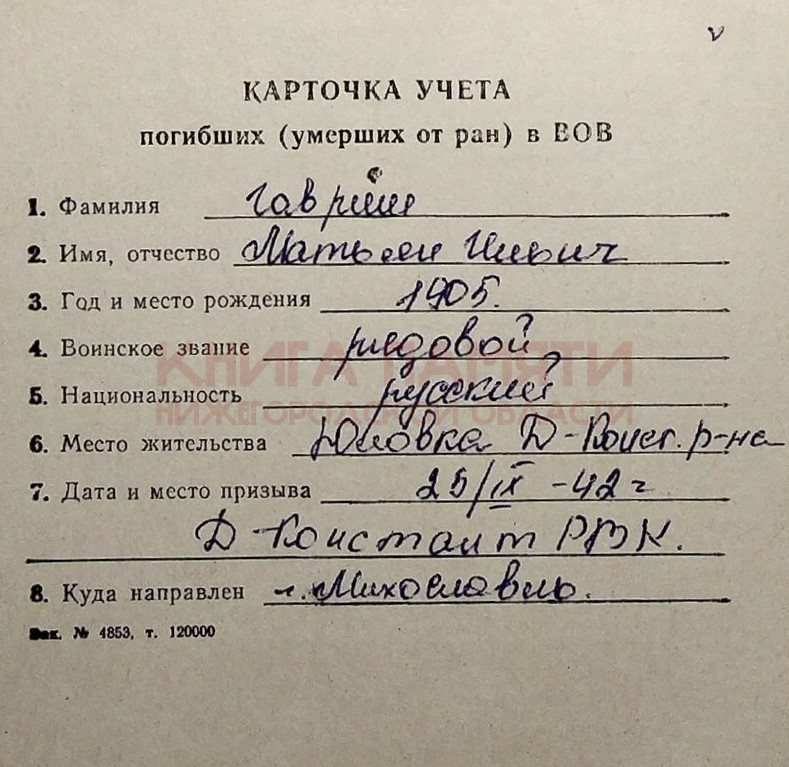 КАРТОЧКА УЧЕТА
погибших (умерших от ран) в ВОВ
1. Фамилия
2. Имя, отчество Ильич
3. Год и место рождения 1905.
4. Воинское звание рядовой
КНИГА ПАМЯТИ
5. Национальность русский
НИЖЕГОРОДСКОЙ ОБЛАСТИ
6. Место жительства Юловка Д-Конст. р-на
7. Дата и место призыва 25/IX -42 г
Д-Констант РВК.
8. Куда направлен г.
Зак. № 4853, т. 120000